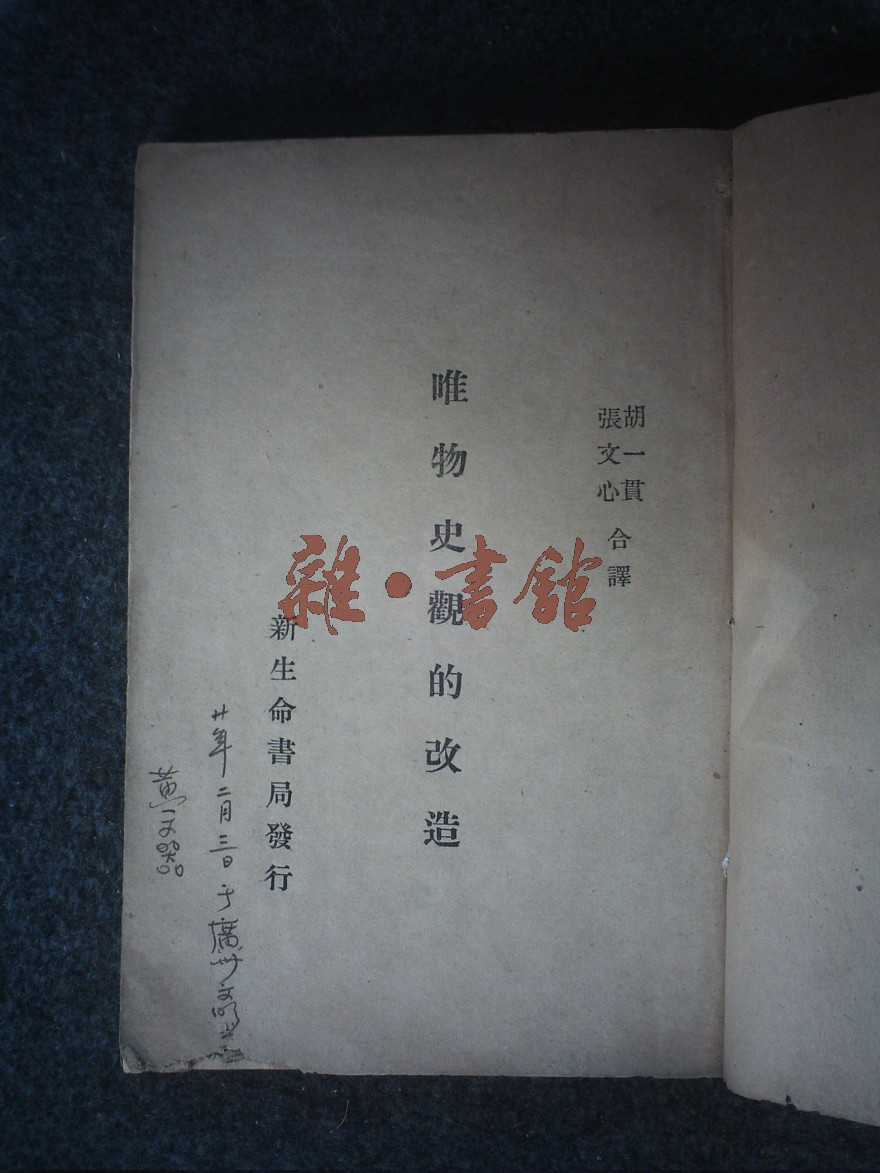 胡一貫
張文心
合譯
唯物史觀的改造
新生命書局發行
廿年二月三日于廣州文明
黃文器
雜·書館